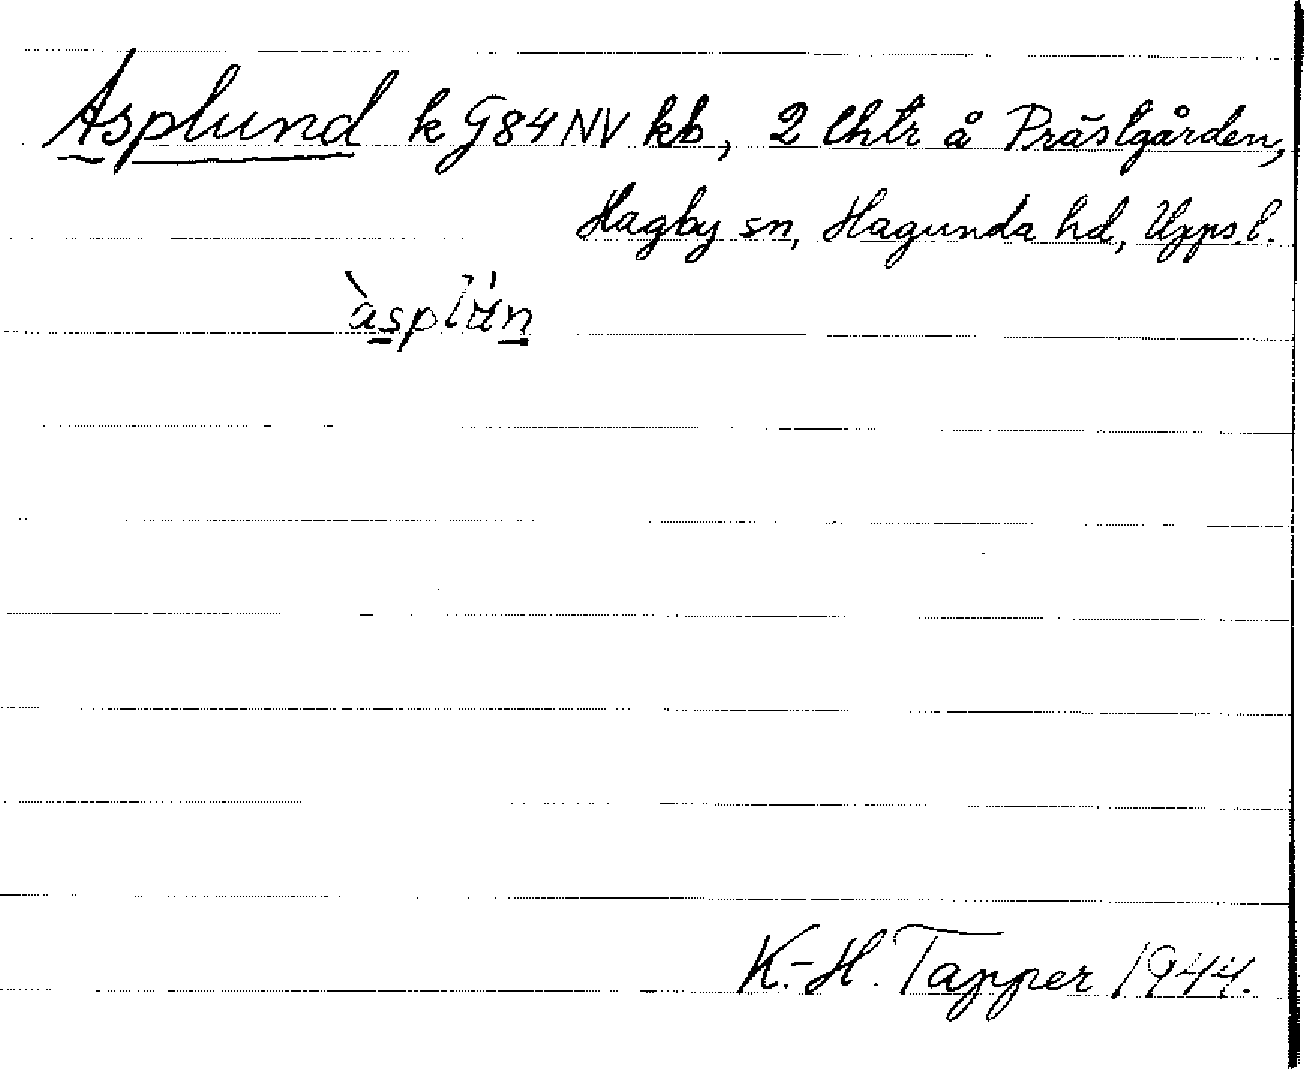 Asplund k G84NV kb, 2 lhtr å Prästgården,
Hagby sn, Hagunda hd, Upps. l.
àsplún
K.-H. Tapper 1944.